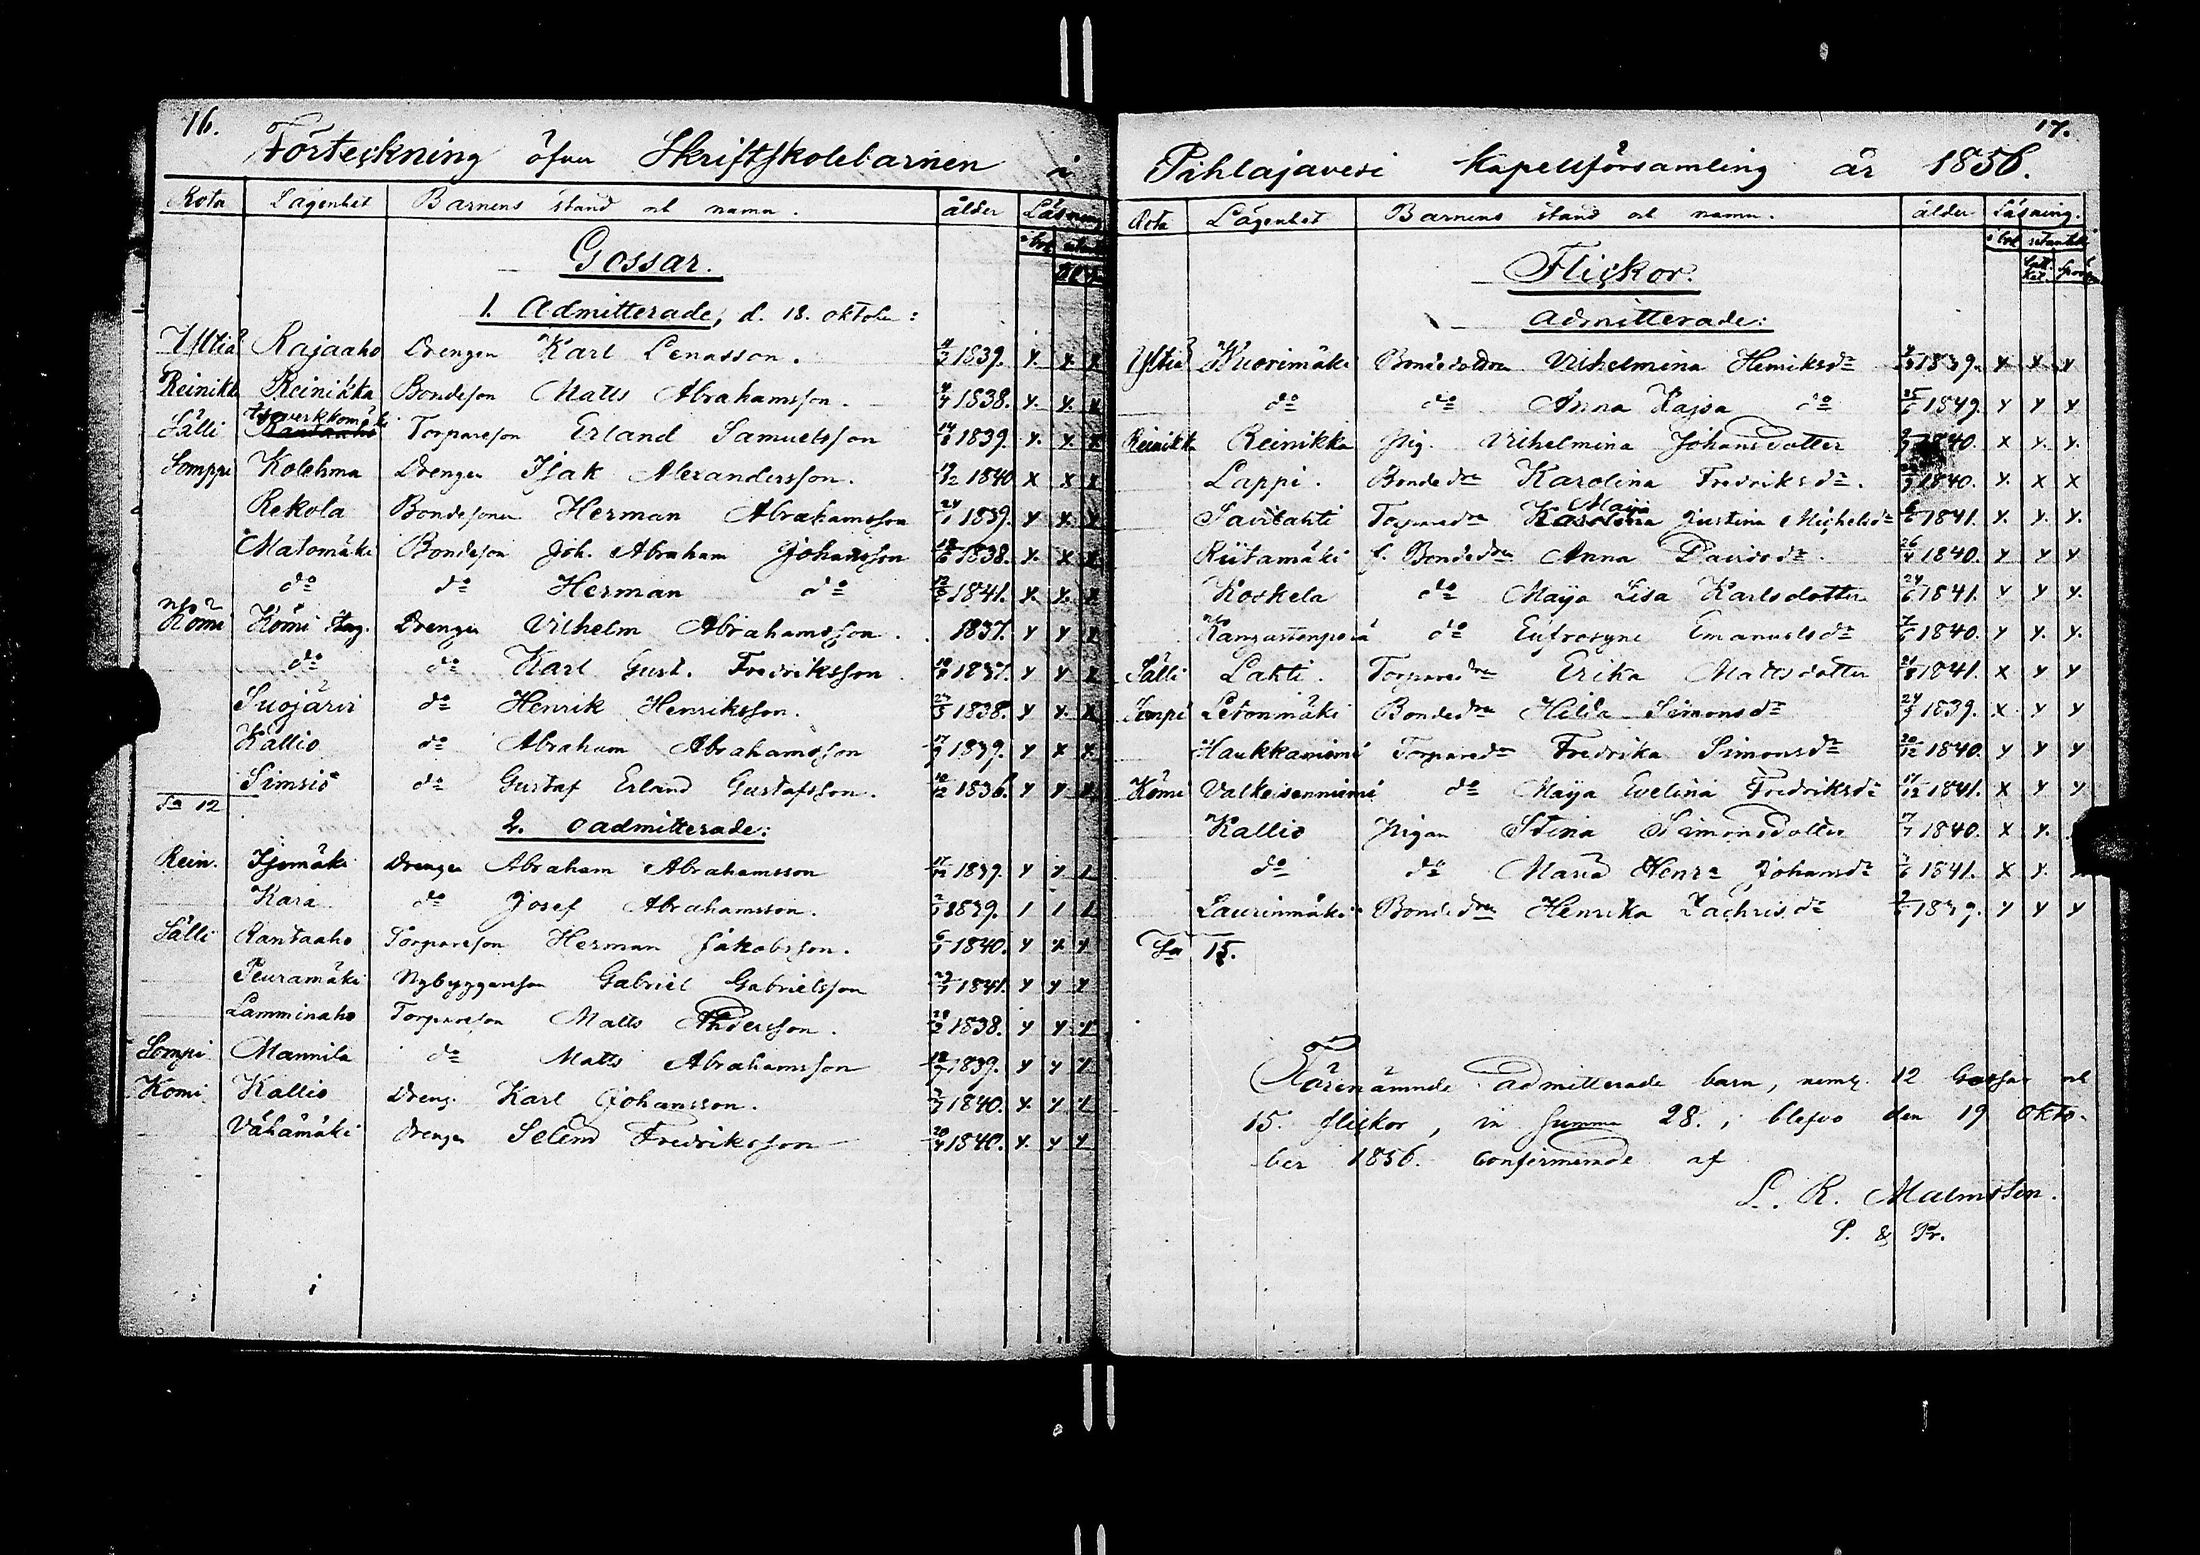 16.
Förteckning öfver Skriftskolebarnen i
Rota Lägenhet Barnens stånd och namn. ålder Läsning
i bok utantill
Gossar.
1. Admitterade, d. 18. oktober:
Rajaaho Drengen Karl Lenasson. 4/3 1839. x. x. x
Reinikk Reinikka Bondeson Matts Abrahamsson. 4/4 1838. x. x. x
Sälli Torpareson Erland Samuelsson 14/8 1839. x. x. x
Somppi Kolehma Drengen Isak Alexandersson. 1840 x x x
Rekola Bondesonen Herman Abrahamsson 24/1 1839. x x. x
Matomäki Bondeson Joh. Abraham Johansson 1838. x. x x
do do Herman do 1841. x. x. x
No 2
Kömi Kömi Drengen Vilhelm Abrahamsson. 1837. x x x
do do Karl Gust. Fredriksson 1837. x x x
Suojärvi do Henrik Henriksson. 1838. x x. x
Kallio do Abraham Abrahamsson 17/9 1839. x x x
Simsiö do Gustaf Erland Gustafsson. 10/12 1836. x x x
Sa 12
2. oadmitterade:
Rein. Drengen Abraham Abrahamsson 1839. x x 1
Kara do Josef Abrahamsson. 1839. 1 1 1
Sälli Rantaaho Torpareson Herman Jakobsson. 1840. x x x
Peuramäki Nybyggareson Gabriel Gabrielsson 1841. x x x
Lamminaho Torpareson Matts Andersson. 1838. x x x
Sompi Mannila do Matts Abrahamsson 1839. x x x
Kömi Kallio Dreng. Karl Johansson. 1840. x. x 1
Vähämäki Drengen Selim Fredriksson 20/4 1840. x. x x
17.
Pihlajavesi Kapellförsamling år 1856.
Rota Lägenhet Barnens stånd och namn. ålder Läsning.
i bok utantill
Flickor.
Admitterade:
Vuorimäki Bondedottren Vilhelmina Henriksdr 1839. x. x. x
do do Anna Kajsa do 1849. x x x
Reinikk Reinikka Pig. Vilhelmina Johansdotter 1840. x x. x.
Lappi. Bondedn Karolina Fredriksdr. 1840. x. x x
Savilahti Torparedn Maija Justina Michelsdr 1841. x. x. x.
Riitamäki f. Bondedn Anna Davidsdr. 26/4 1840. x x x
Koskela do Maija Lisa Karlsdotter 24/6 1841. x x x.
Kangastenperä do Eufrosyne Emanuelsdr 7/6 1840. x x. x.
Sälli Lahti. Torparedn Erika Mattsdotter 21/8 1841. x x x
Sompi Letonmäki Bondedn Hilda Simonsdr 1839. x. x x
Haukkaniemi Torparedn Fredrika Simonsdr 20/12 1840. x x x
Kömi Valkeisenniemi do Maija Evelina Fredriksdr 17/12 1841. x x x
Kallio Pigan Stina Simonsdotter 17/7 1840. x x.
do do Maria Henra Johansdr 1841. x x.
Laurinmäki Bondedn Henrika Zachrisdr 1839. x x x
Sa 15.
Förenämnde admitterade barn, neml. 12 Gossar och
15. flickor, in Summa 28., blefvo den 19 okto-
ber 1856. confirmerade af
L. R. Malmsten.
S. & Pr.